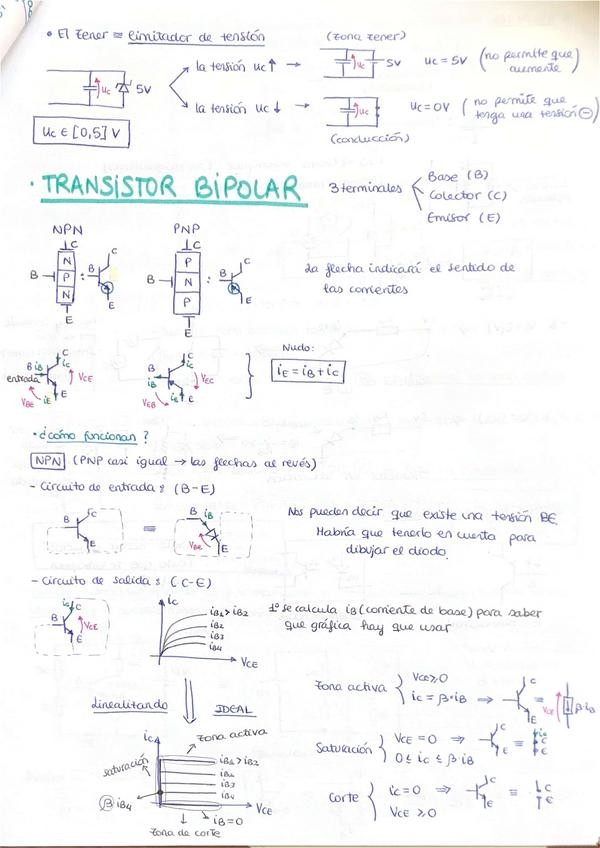 • El Zener = limitador de tensión
(zona zener)
la tensión uc↑ →
uc
5v
uc = 5V (no permite que aumente)
uc
5V
la tensión uc↓ →
uc
uc = 0V (no permite que tenga una tensión ⊖)
(conducción)
uc ∈ [0,5] V
• TRANSISTOR BIPOLAR
3 terminales
Base (B)
Colector (C)
Emisor (E)
NPN
PNP
C
N
B
P
N
E
:
B
C
E
C
P
B
N
P
E
:
B
C
E
la flecha indicará el sentido de
las corrientes
B iB
entrada
C
iC
VCE
VBE
iE
E
C
iC
B
iB
VEC
VEB
iE
E
Nudo:
iE = iB + iC
• ¿cómo funcionan?
NPN (PNP casi igual → las flechas al revés)
- Circuito de entrada: (B-E)
B
C
E
=
B
iB
VBE
E
Nos pueden decir que existe una tensión BE.
Habría que tenerlo en cuenta para
dibujar el diodo.
- Circuito de salida: (C-E)
iC
C
B
VCE
E
iC
iB1 > iB2
iB2
iB3
iB4
VCE
1º se calcula iB (corriente de base) para saber
que gráfica hay que usar
Linealizando
IDEAL
Zona activa
VCE ≥ 0
iC = β·iB ⇒
C
E
=
VCE
β·iB
Saturación
VCE = 0 ⇒
0 ≤ iC ≤ β·iB
C
E
≡
iC
C
E
Corte
iC = 0 ⇒
VCE ≥ 0
C
E
≡
C
E
iC
zona activa
saturación
iB1 > iB2
iB2
iB3
iB4
β iB4
VCE
iB = 0
Zona de corte